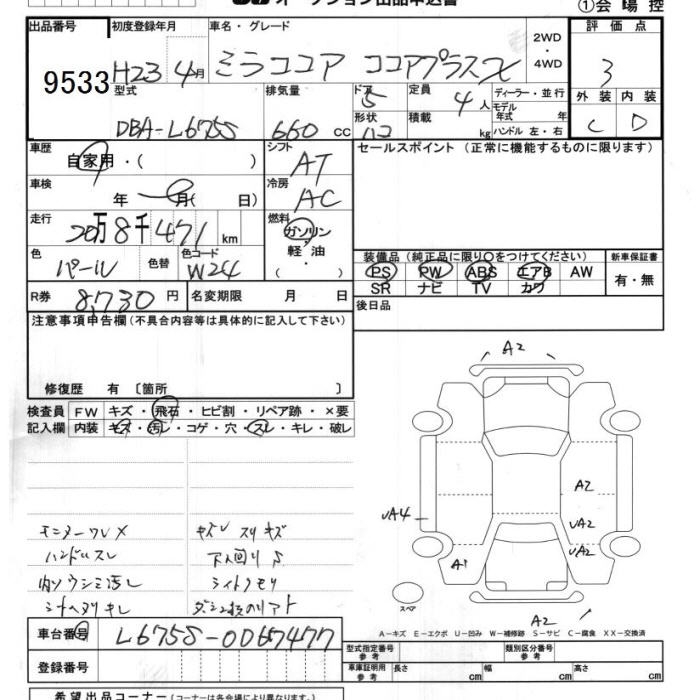 ①会場控
出品番号 初度登録年月 車名・グレード 2WD・4WD 評価点
9533 H23 4月 ミラココア ココアプラスX 3
型式 排気量 ドア 定員 ディーラー・並行 外装 内装
DBA-L675S 660 cc 5 4人 モデル年式 年式 C D
形状 積載 kg ハンドル 左・右
車歴 シフト セールスポイント (正常に機能するものに限ります)
自家用・( ) AT
車検 冷房
年 月( 日) AC
走行 燃料
20万8千471 km ガソリン・軽油・( )
色 色替 色コード 装備品 (純正品に限り○をつけてください) 新車保証書
パール W24 PS PW ABS エアB AW 有・無
SR ナビ TV カワ
R券 8,730円 名変期限 月 日 後日品
注意事項申告欄(不具合内容等は具体的に記入して下さい)
修復歴 有 〔箇所 〕
検査員 FW キズ・飛石・ヒビ割・リペア跡・×要
記入欄 内装 キズ・汚レ・コゲ・穴・スレ・キレ・破レ
A2
A2
UA4
UA2
UA2
A1
A2
スペア
ハンドルスレ
ライトクモリ
A-キズ E-エクボ U-凹み W-補修跡 S-サビ C-腐食 XX-交換済
車台番号 L675S-0067477
登録番号
型式指定番号 参考 類別区分番号 参考
車庫証明用 参考 長さ cm 幅 cm 高さ cm
希望出品コーナー(社名は各会場により異なります)